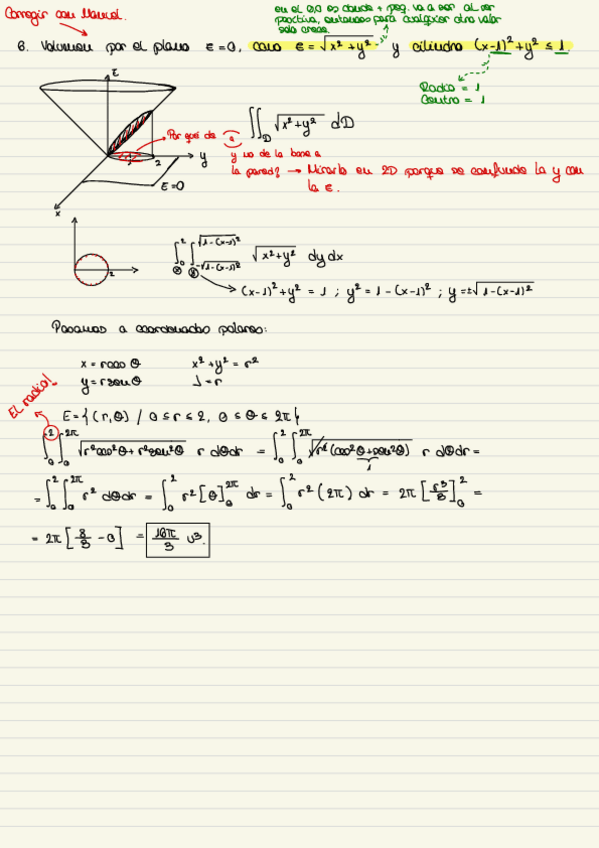 Corregir con Manuel.
en el 0,0 es donde + peq. va a ser al ser
positiva, entonces para cualquier otro valor
solo crece.
6. Volumen por el plano z=0, cono z = √(x²+y²) y cilindro (x-1)²+y² ≤ 1
Radio = 1
Centro = 1
z
∬_D √(x²+y²) dD
Por qué de
y no de la base a
la pared? → Mirarlo en 2D porque se confunde la y con
la z.
1
2
y
z=0
x
2
∫₀² ∫_{-√(1-(x-1)²)}^{√(1-(x-1)²)} √(x²+y²) dy dx
(x-1)²+y² = 1 ; y² = 1-(x-1)² ; y=±√(1-(x-1)²)
Pasamos a coordenadas polares:
x = r cos θ x²+y² = r²
y = r sen θ J = r
El radio!
E = {(r,θ) / 0 ≤ r ≤ 2, 0 ≤ θ ≤ 2π}
∫₀² ∫₀^{2π} √(r²cos²θ + r²sen²θ) r dθdr = ∫₀² ∫₀^{2π} √(r²(cos²θ+sen²θ)) r dθdr =
1
= ∫₀² ∫₀^{2π} r² dθdr = ∫₀² r² [θ]₀^{2π} dr = ∫₀² r² (2π) dr = 2π [r³/3]₀² =
= 2π [8/3 - 0] = 16π/3 u³.